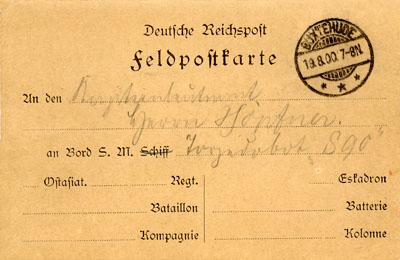 Deutsche Reichspost
BUXTEHUDE
19.8.00. 7-8N.
Feldpostkarte
An den
Herrn Höpfner.
an Bord S. M. Schiff Torpedobot „S90"
Ostasiat. Regt. Eskadron
Bataillon Batterie
Kompagnie Kolonne